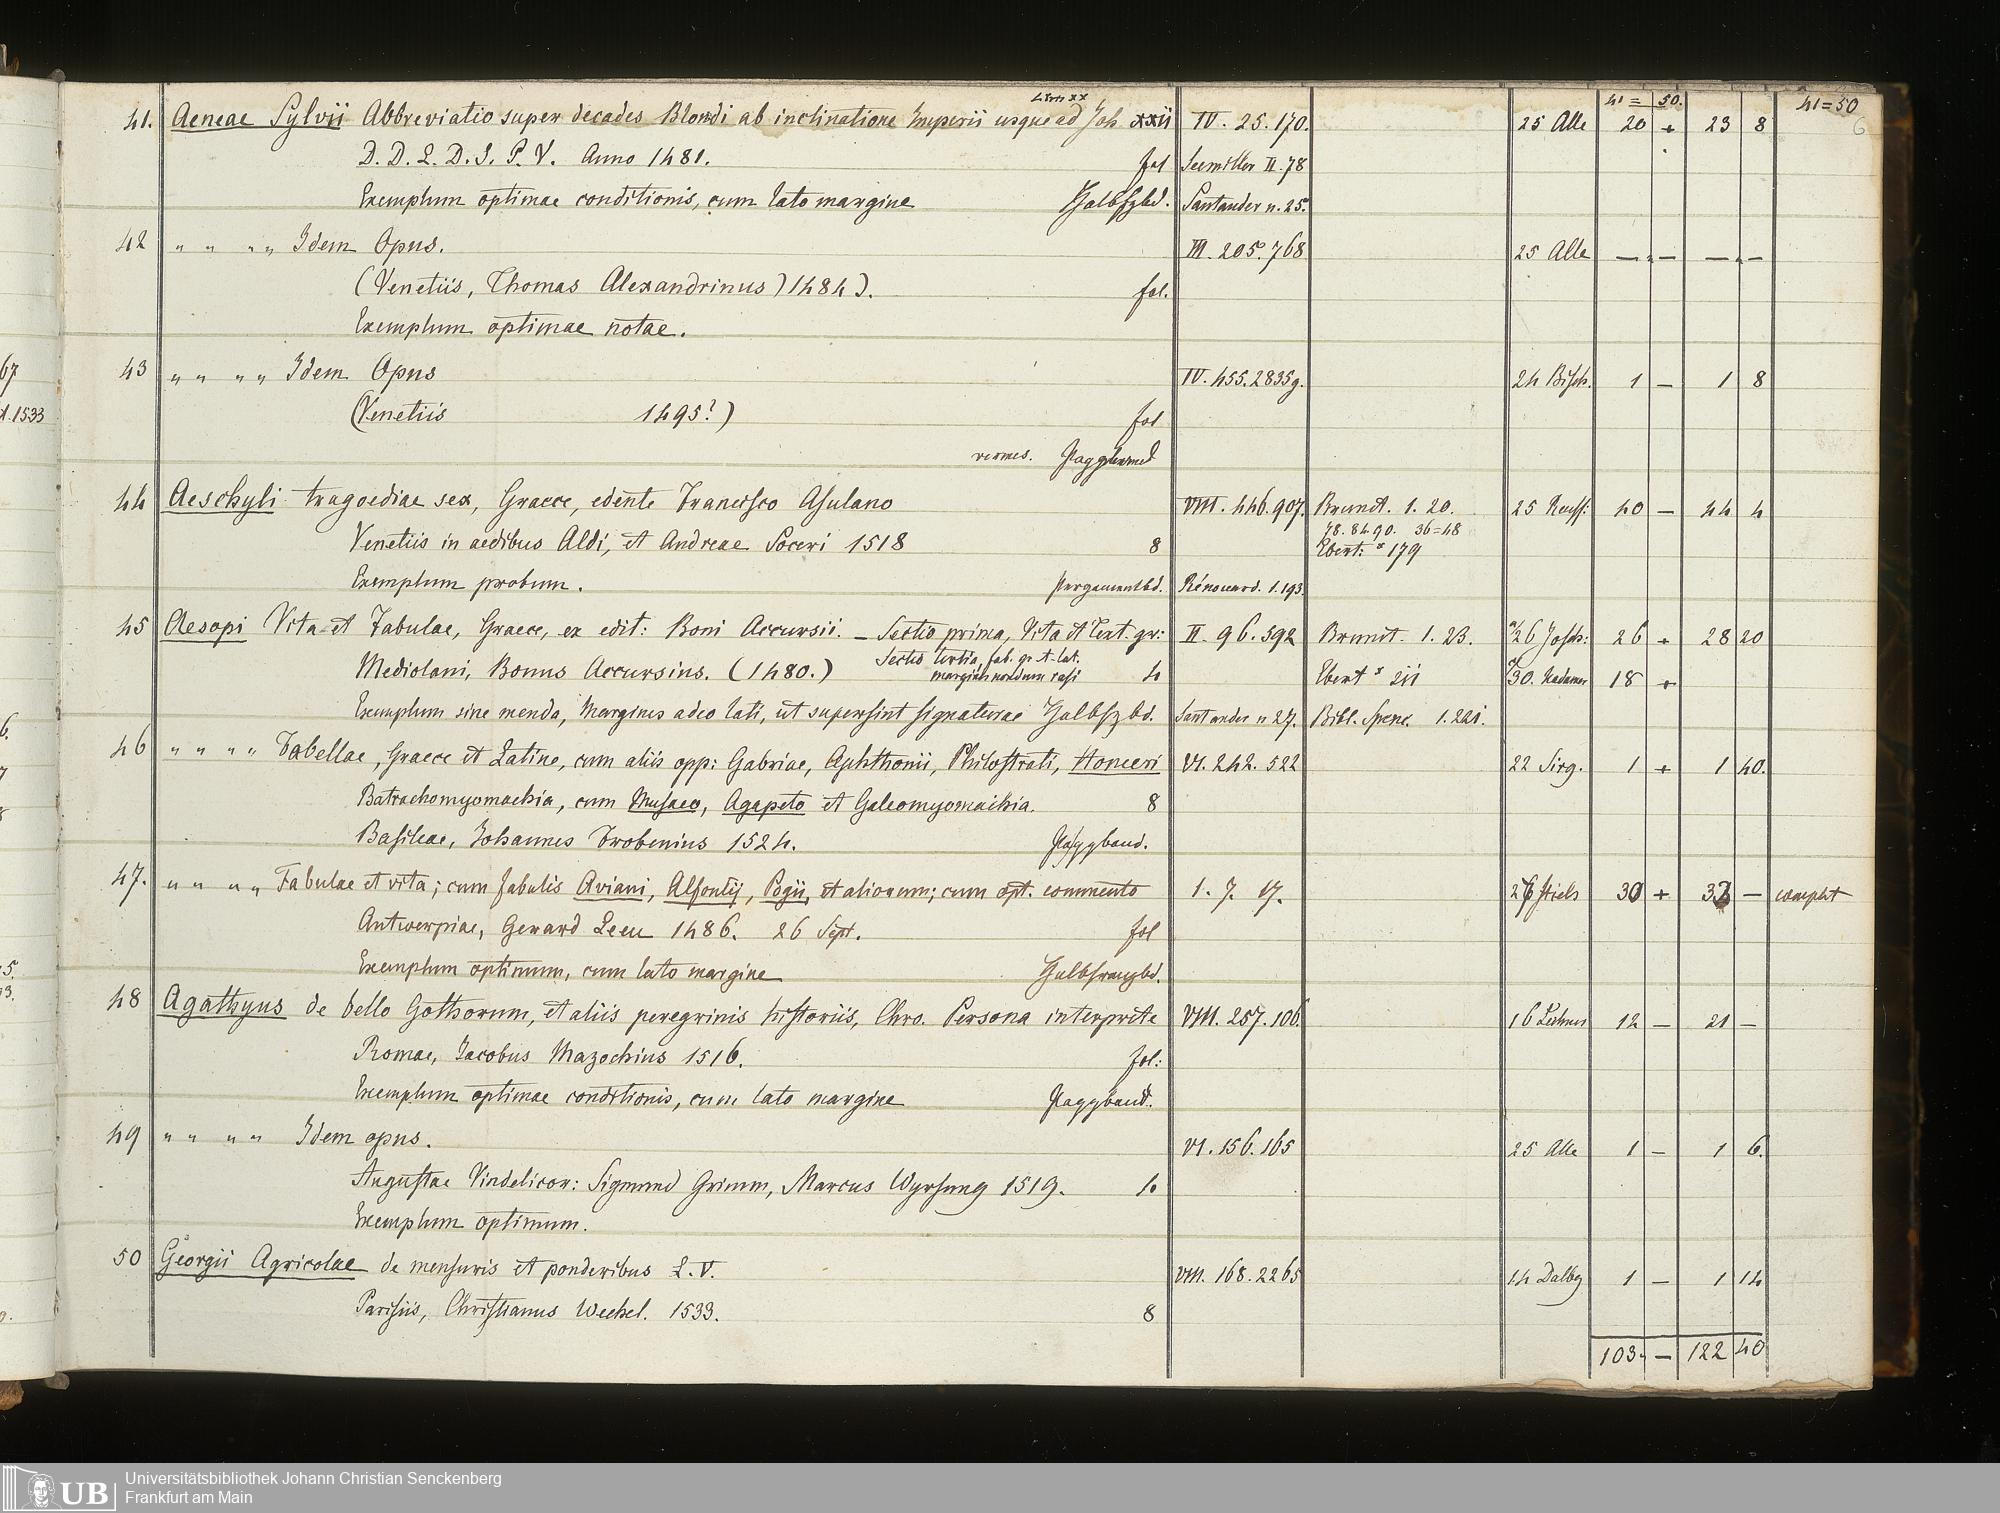 Libri XX 41 = 50. 41=50
6
41. Aeneae Sylvii Abbreviatio super decades Blondi ab inclinatione Imperii usque ad Joh. XXII IV. 25. 170. 25 Alle 20 + 23 8
D. D. L. D. S. P. V. Anno 1481. fol Seemiller II. 78
Exemplum optimae conditionis, cum lato margine Halbfzbd. Santander n. 25.
42 " " " " Idem Opus. III. 205. 768 25 Alle — " — — " —
(Venetiis, Thomas Alexandrinus) 1484). fol.
Exemplum optimae notae.
67
43 " " " " Idem Opus IV. 455. 2835g. 24 Bisch. 1 — 1 8
1533 (Venetiis 1495?) fol
vermes.
44 Aeschyli tragoediae sex, Graece, edente Francisco Asulano VIII. 446. 907. Brunet. 1. 20. 25 40 — 44 4
78. 84 90. 36=48
Venetiis in aedibus Aldi, et Andreae Soceri 1518 8 Ebert: * 179
Exemplum probum. Pergamentbd. Rénouard. 1. 193.
45 Aesopi Vita et Fabulae, Graece, ex edit: Boni Accursii. — Sectio prima, Vita et Text. gr: II. 96. 592 Brunet. 1. 23. 26 Josch: 26 + 28 20
Mediolani, Bonus Accursius. (1480.) Sectio tertia, fab. gr. et lat. margines nondum rasi 4 Ebert * 211 30. 18 +
Exemplum sine menda, margines adeo lati, ut supersint signaturae Halbfzbd. Santander n 27. Bibl. Spenc. 1. 221.
46 " " " " Fabellae, Graece et Latine, cum aliis opp: Gabriae, Aphthonii, Philostrati, Homeri VI. 242. 522 22 Sirg. 1 + 1 40.
Batrachomyomachia, cum Musaeo, Agapeto et Galeomyomachia. 8
Basileae, Johannes Frobenius 1524. Pappband.
47. " " " " Fabulae et vita; cum fabulis Aviani, Alfontij, Pogii, et aliorum; cum opt. commento 1. 7. 17. 30 + — complet
Antwerpiae, Gerard Leeu 1486. 26 Sept. fol
Exemplum optimum, cum lato margine Halbfranzbd.
48 Agathyus de bello Gothorum, et aliis peregrinis historiis, Chro. Persona interprete VIII. 257. 106. 16 Lechner 12 — 21 —
Romae, Jacobus Mazochius 1516. fol:
Exemplum optimae conditionis, cum lato margine Pappband.
49 " " " " Idem opus. VI. 156. 165 25 Alle 1 — 1 6.
Augustae Vindelicor: Sigmund Grimm, Marcus Wyrsung 1519. 4
Exemplum optimum.
50 Georgii Agricolae de mensuris et ponderibus L. V. VIII. 168. 2265 14 Dalbg 1 — 1 14
Parisiis, Christianus Wechel. 1533. 8
103 — 122 40
UB Universitätsbibliothek Johann Christian Senckenberg
Frankfurt am Main